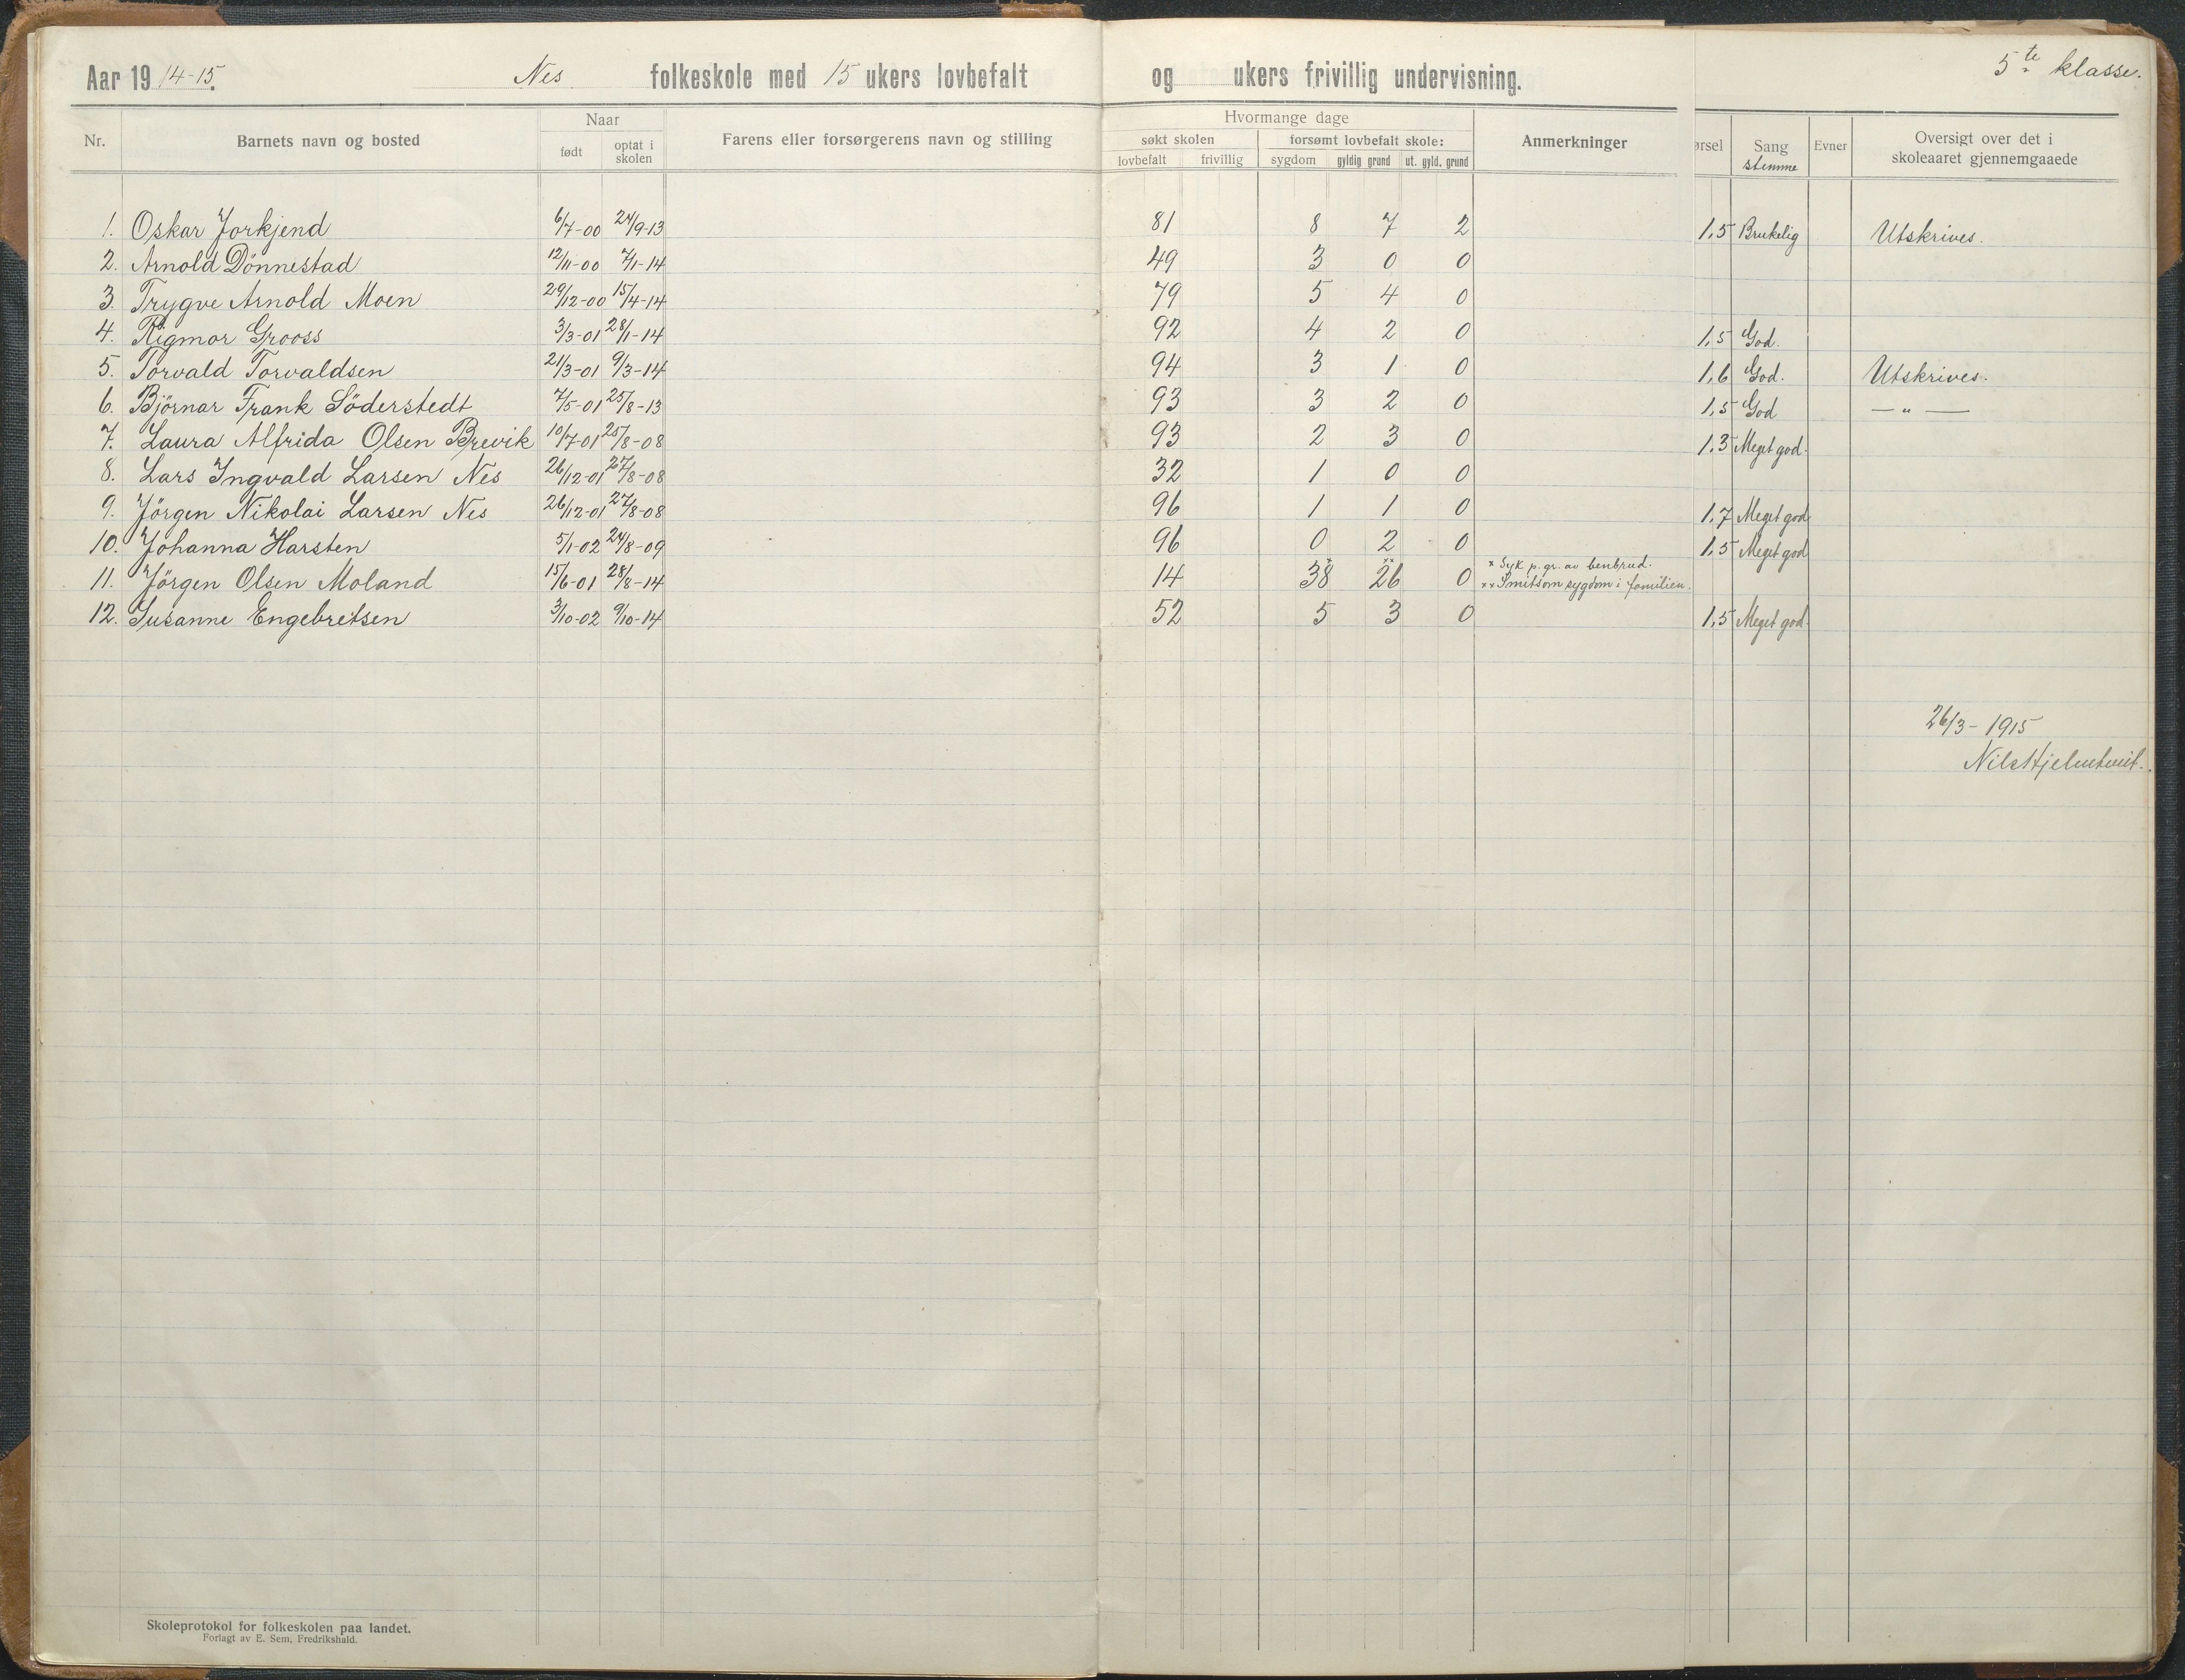 Aar 1914-15. Nes folkeskole med 15 ukers lovbefalt og ukers frivillig undervisning. 5te klasse.
Nr. Barnets navn og bosted Naar født optat i skolen Farens eller forsørgerens navn og stilling Hvormange dage søkt skolen lovbefalt frivillig forsømt lovbefalt skole: sygdom gyldig grund ut. gyld. grund Anmerkninger ørsel Sang stemme Evner Oversigt over det i skoleaaret gjennemgaaede
1. Oskar Jorkjend 6/7-00 24/9-13 81 8 7 2 1,5 Brukelig Utskrives.
2. Arnold Dönnestad 12/11-00 7/1-14 49 3 0 0
3 Trygve Arnold Moen 29/12-00 15/4-14 79 5 4 0
4. Rigmor Grooss 3/3-01 28/1-14 92 4 2 0 1,5 God.
5. Torvald Torvaldsen 21/3-01 9/3-14 94 3 1 0 1,6 God. Utskrives.
6. Björnar Frank Söderstedt 7/5-01 25/8-13 93 3 2 0 1,5 God — " —
7. Laura Alfrida Olsen Brevik 10/7-01 25/8-08 93 2 3 0 1,3 Meget god.
8. Lars Ingvald Larsen Nes 26/12-01 27/8-08 32 1 0 0
9. Jörgen Nikolai Larsen Nes 26/12-01 27/8-08 96 1 1 0 1,7 Meget god
10. Johanna Harsten 5/1-02 24/8-09 96 0 2 0 1,5 Meget god
11. Jörgen Olsen Moland 15/6-01 28/8-14 14 38 x 26 xx 0 x Syk p. gr. av benbrud.
xx Smitsom sygdom i familien.
12. Susanne Engebretsen 3/10-02 9/10-14 52 5 3 0 1,5 Meget god.
26/3-1915
Nils Hjelmtveit.
Skoleprotokol for folkeskolen paa landet.
Forlagt av E. Sem, Fredrikshald.